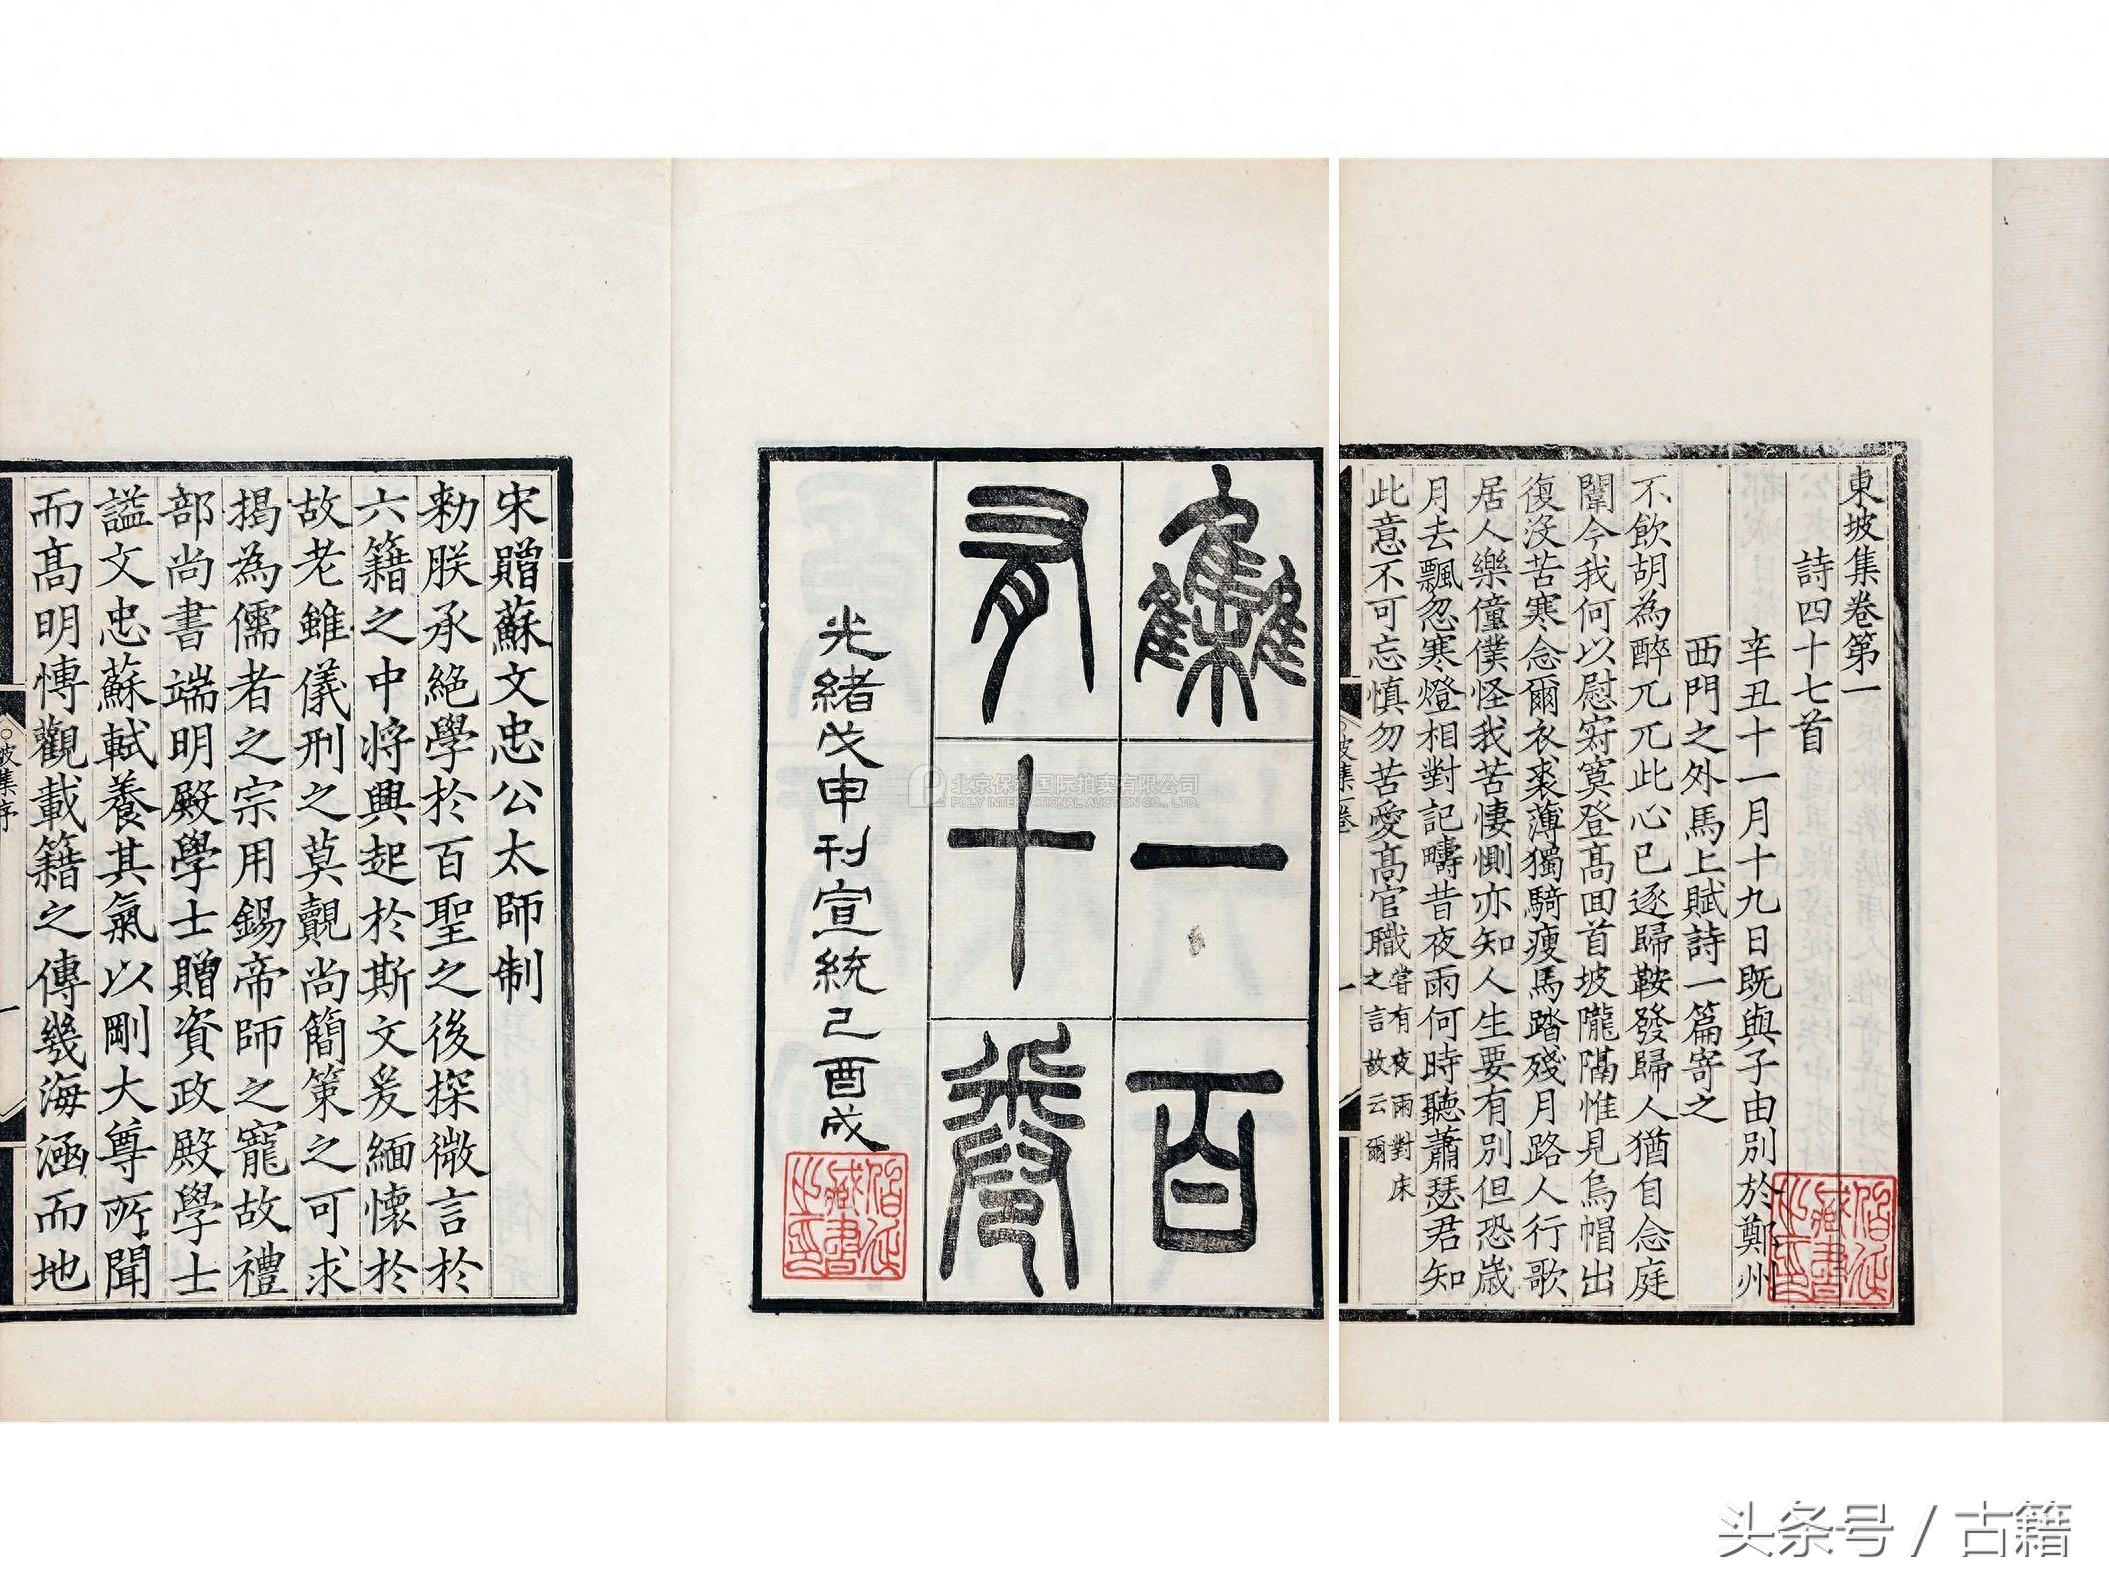 東坡集卷第一
詩四十七首
辛丑十一月十九日既與子由別於鄭州
西門之外馬上賦詩一篇寄之
不飲胡為醉兀兀此心已逐歸鞍發歸人猶自念庭
闈今我何以慰寂寞登髙回首坡隴隔惟見烏帽出
復沒苦寒念爾衣裘薄獨騎瘦馬踏殘月路人行歌
居人樂僮僕怪我苦悽惻亦知人生要有別但恐歲
月去飄忽寒燈相對記疇昔夜雨何時聽蕭瑟君知
此意不可忘慎勿苦愛髙官職嘗有夜雨對床之言故云爾
坡集一卷
一
藏書
之印
集一百
有十卷
光緒戊申刊宣統己酉成
藏書
之印
北京保利国际拍卖有限公司
POLY INTERNATIONAL AUCTION CO., LTD.
宋贈蘇文忠公太師制
勑朕承絶學於百聖之後探微言於
六籍之中将興起於斯文爰緬懷於
故老雖儀刑之莫覿尚簡策之可求
揭為儒者之宗用錫帝師之寵故禮
部尚書端明殿學士贈資政殿學士
謚文忠蘇軾養其氣以剛大尊所聞
而髙明博觀載籍之傳幾海涵而地
坡集序
一
头条号 / 古籍